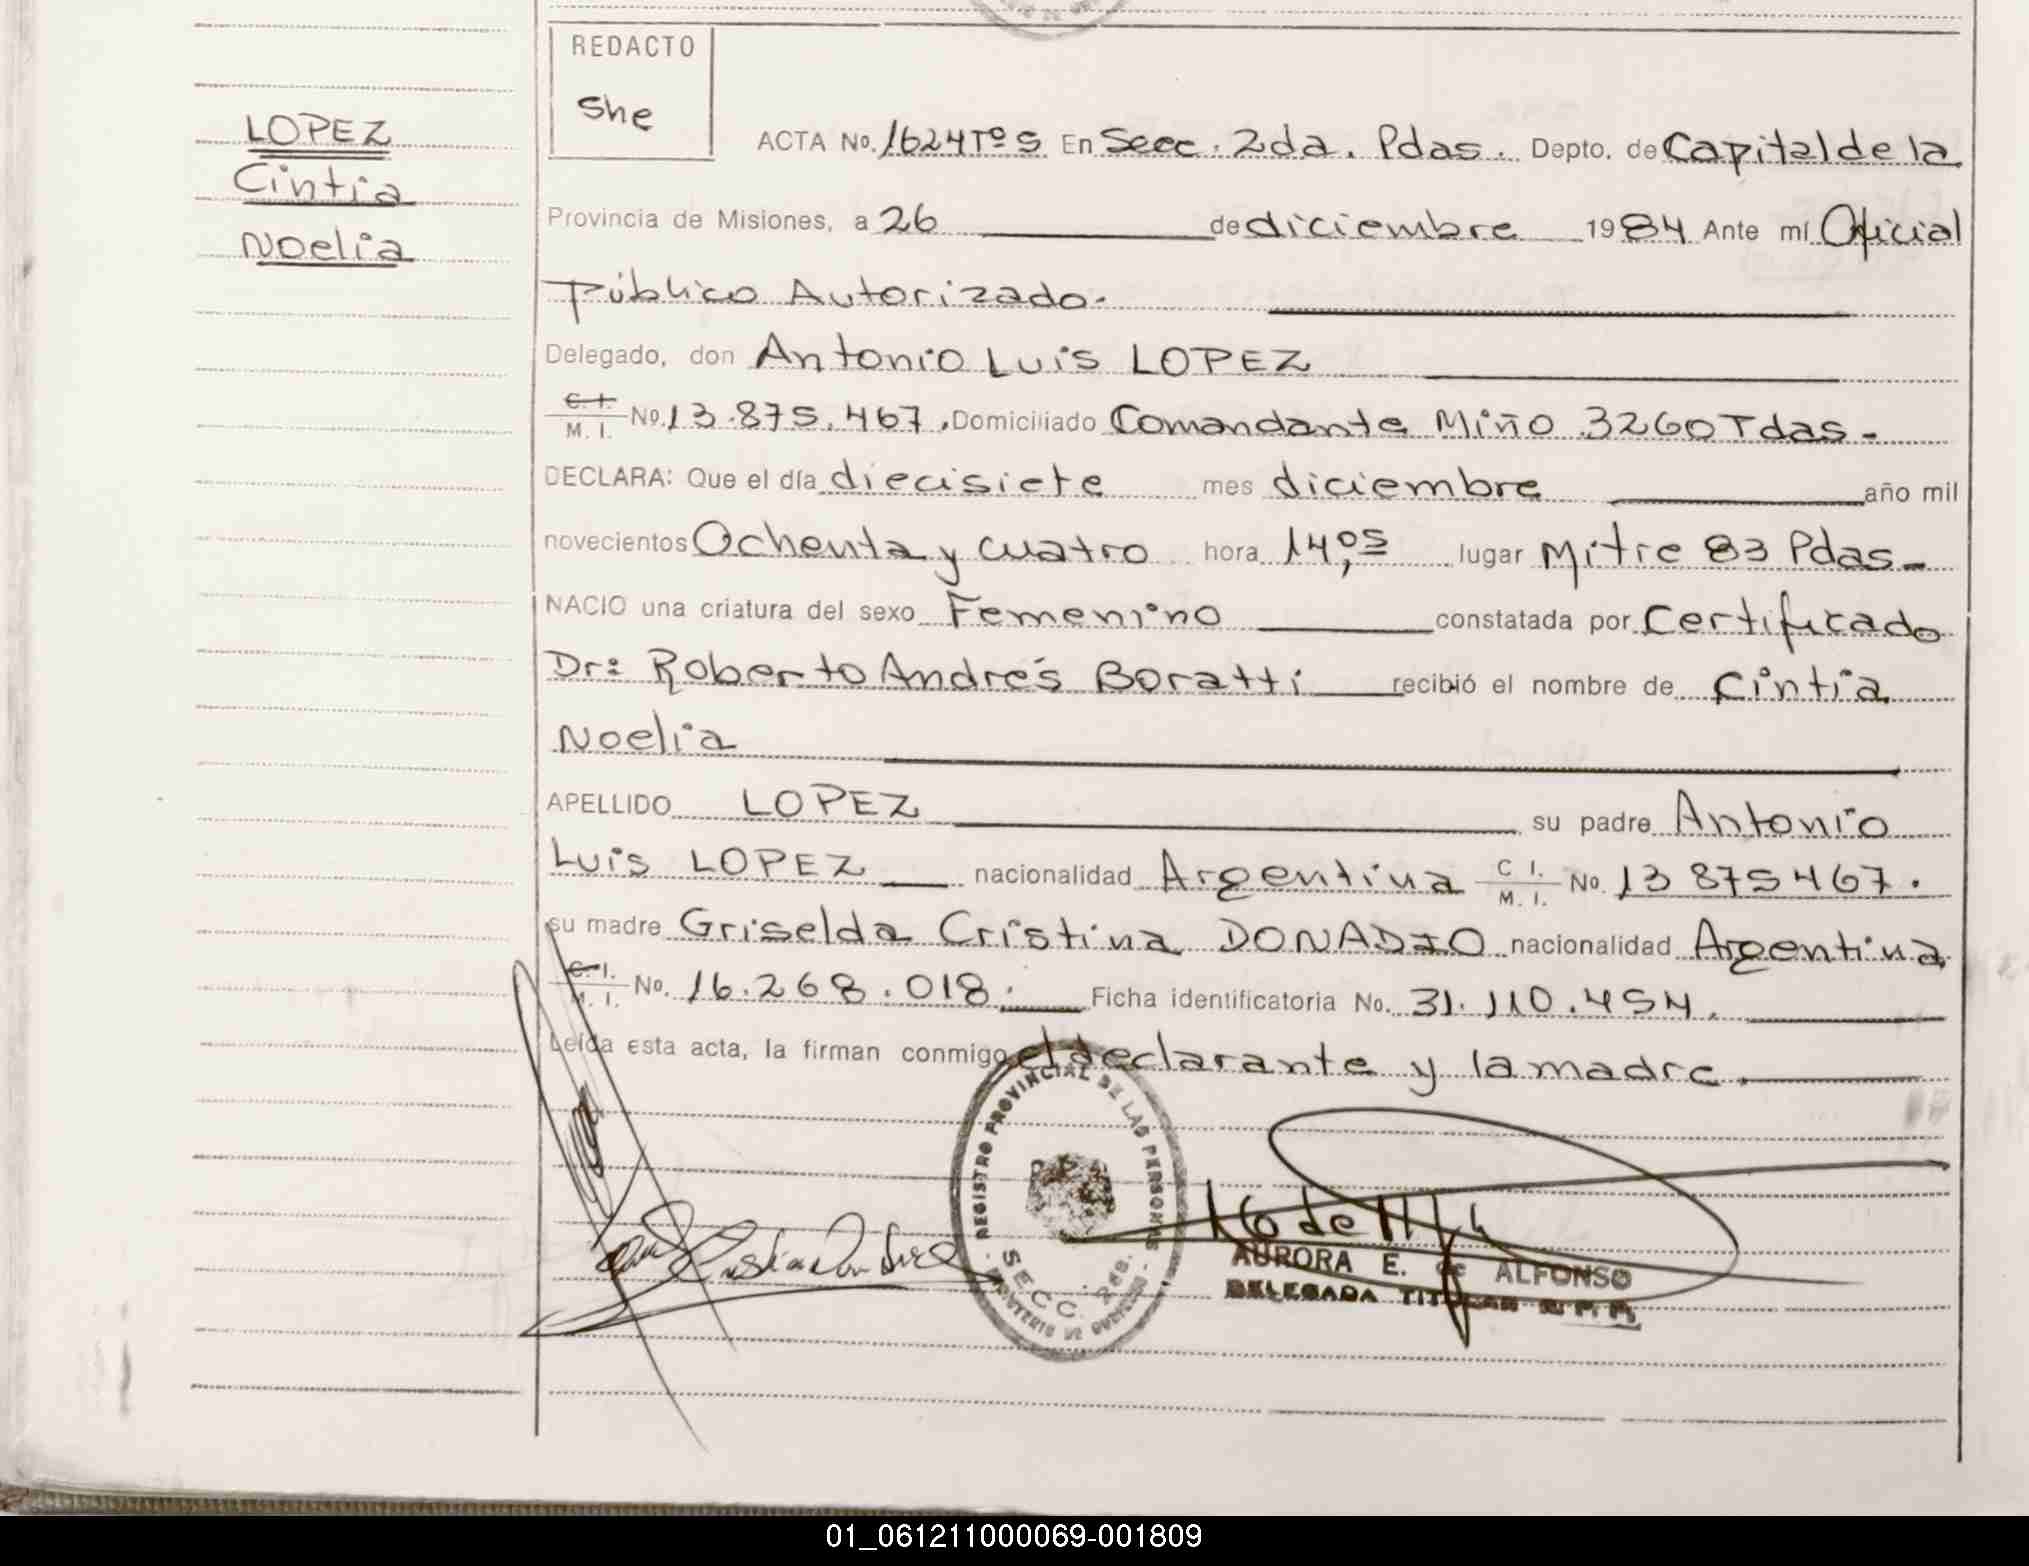 REDACTO
She
LOPEZ
Cintia
Noelia
ACTA No. 1624 Tº 5 En Secc. 2da. Pdas. Depto. de Capital de la
Provincia de Misiones, a 26 de diciembre 1984 Ante mí Oficial
Público Autorizado.
Delegado, don Antonio Luis LOPEZ
C. I. / M. I. No. 13.875.467. Domiciliado Comandante Miño 3260 Tdas.
DECLARA: Que el día diecisiete mes diciembre año mil
novecientos Ochenta y cuatro hora 14,05 lugar Mitre 83 Pdas.
NACIO una criatura del sexo Femenino constatada por Certificado
Dr: Roberto Andrés Boratti recibió el nombre de Cintia
Noelia
APELLIDO LOPEZ su padre Antonio
Luis LOPEZ nacionalidad Argentina C I. / M. I. No. 13 875467.
su madre Griselda Cristina DONADIO nacionalidad Argentina
C. I. / M. I. No. 16.268.018. Ficha identificatoria No. 31.110.454.
Leída esta acta, la firman conmigo el declarante y la madre.
REGISTRO PROVINCIAL DE LAS PERSONAS
SECC. 2da.
MINISTERIO DE GOBIERNO
AURORA E. de ALFONSO
DELEGADA TITULAR R. P. P.
01_061211000069-001809